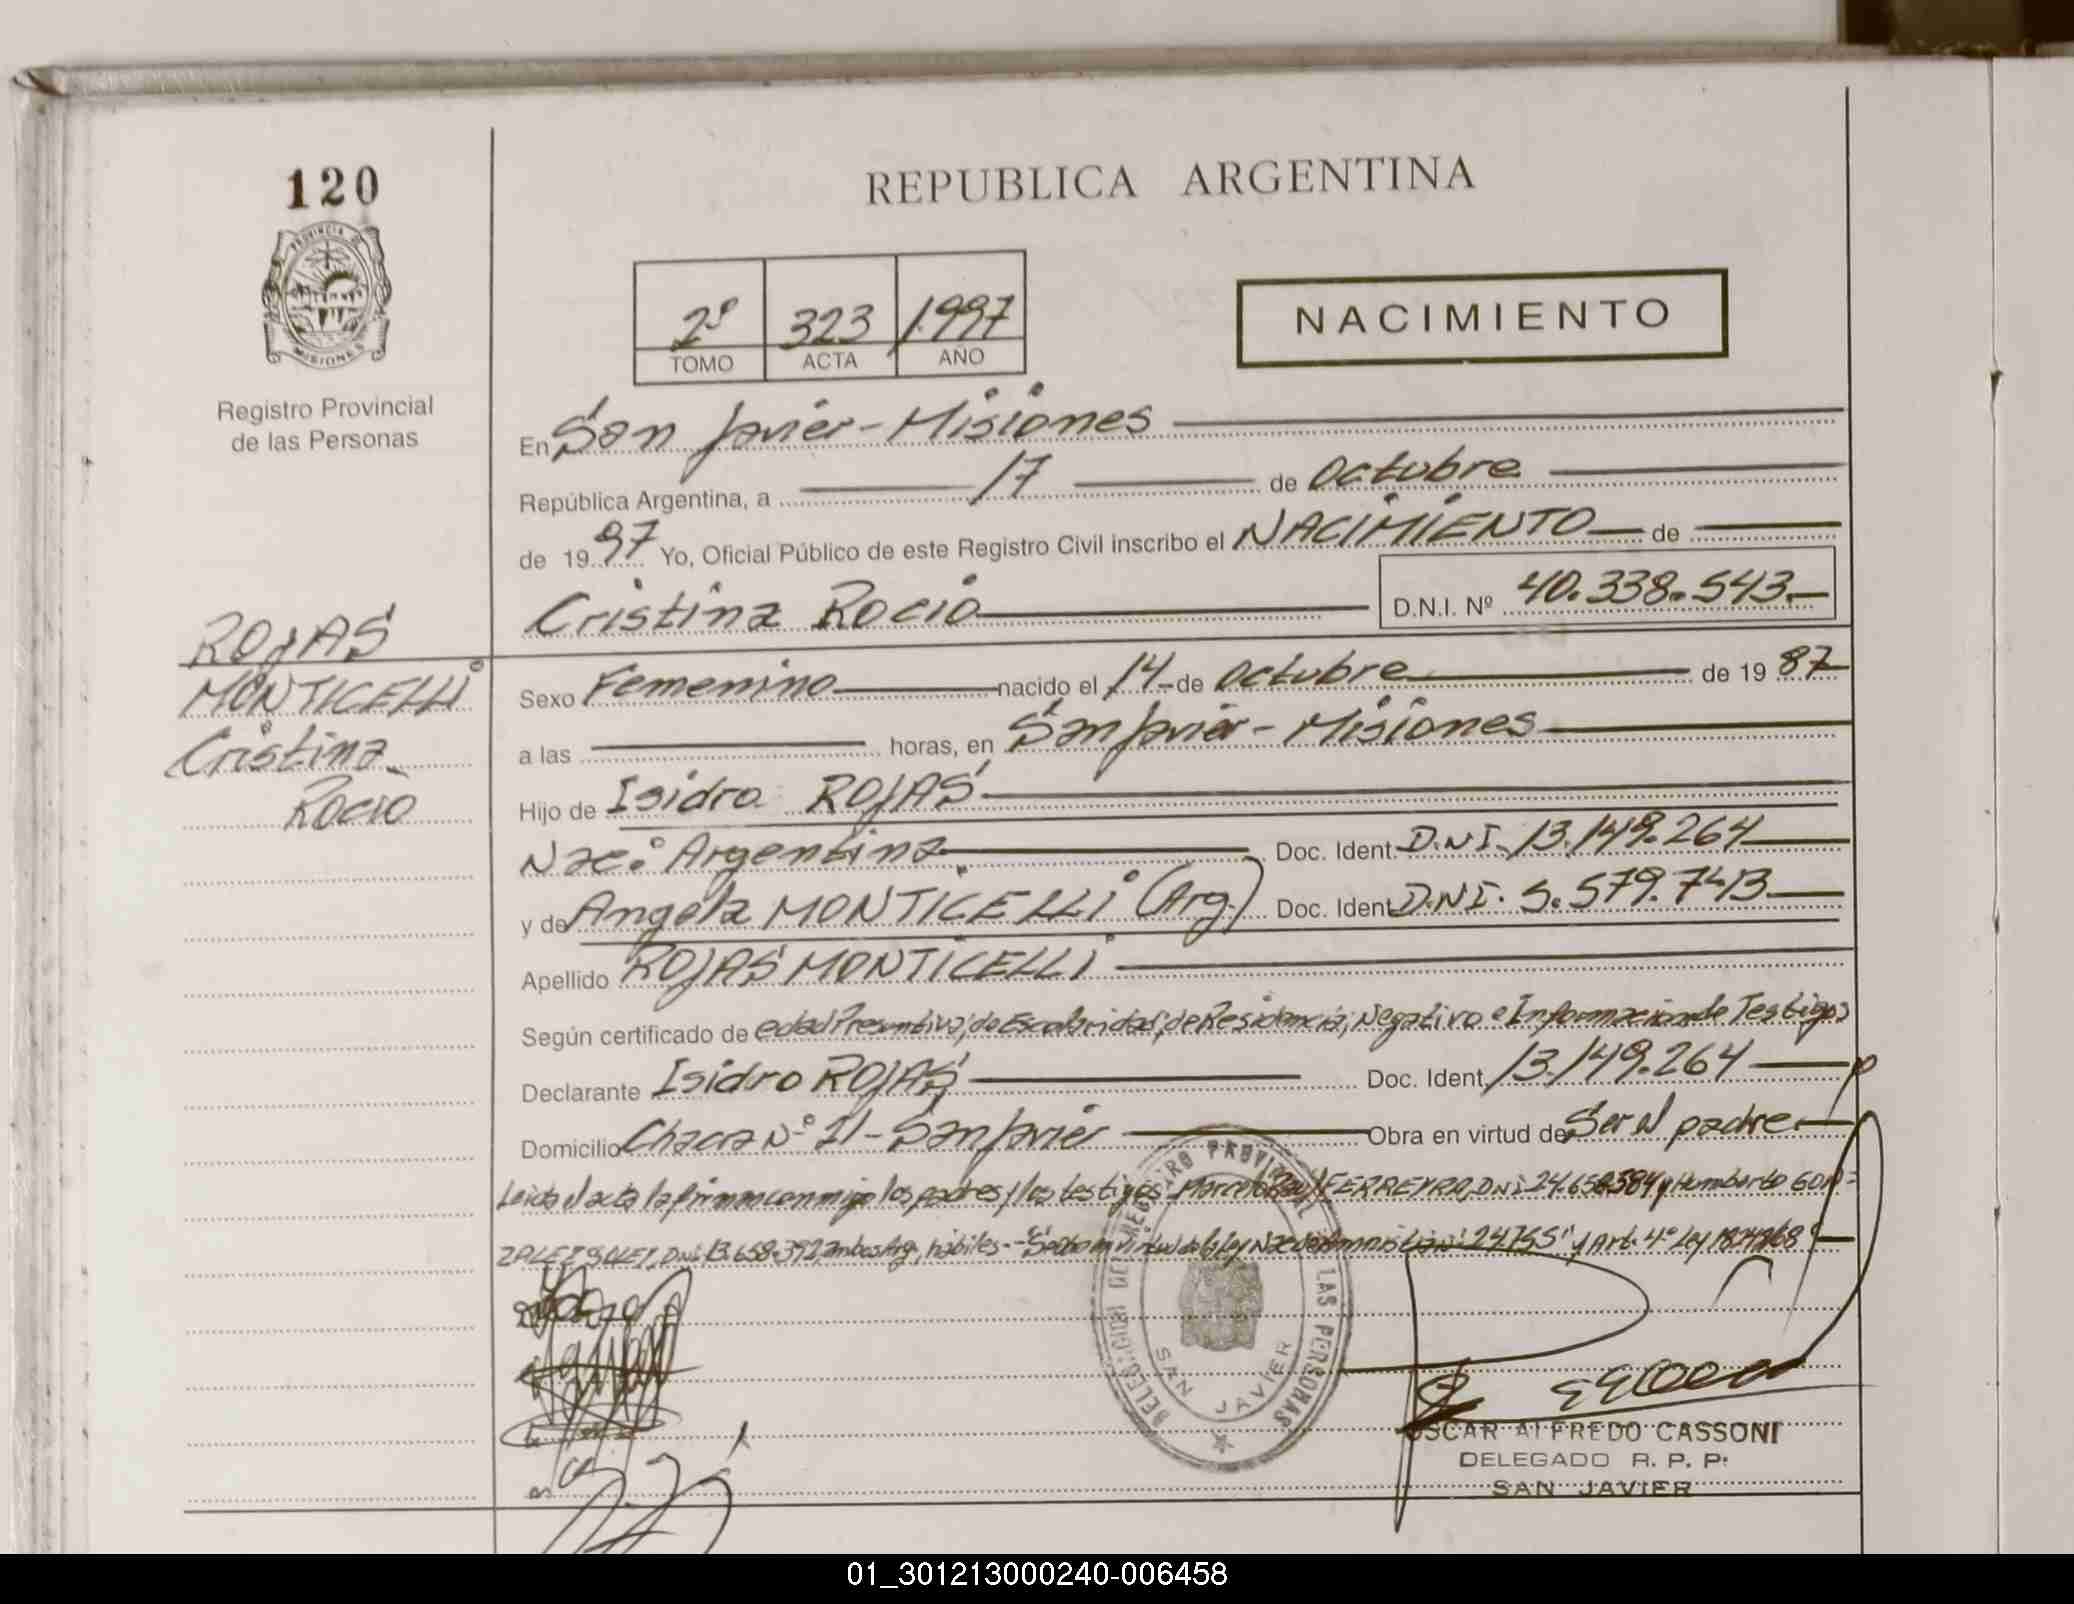 120
PROVINCIA DE
MISIONES
Registro Provincial
de las Personas
REPUBLICA ARGENTINA
2º 323 1.997
TOMO ACTA AÑO
NACIMIENTO
En San Javier - Misiones
República Argentina, a 17 de Octubre
de 1997 Yo, Oficial Público de este Registro Civil inscribo el NACIMIENTO de
Cristina Rocio D.N.I. Nº 40.338.543.-
ROJAS
MONTICELLI
Cristina
Rocio
Sexo Femenino nacido el 14 de Octubre de 1987
a las horas, en San Javier - Misiones
Hijo de Isidro ROJAS
Nac: Argentina Doc. Ident. D.N.I. 13.149.264
y de Angela MONTICELLI (Arg.) Doc. Ident. D.N.I. 5.579.743
Apellido ROJAS MONTICELLI
Según certificado de edad Presuntiva, de Escolaridad, de Residencia, Negativo e Informacion de Testigos
Declarante Isidro ROJAS Doc. Ident. 13.149.264
Domicilio Chacra Nº 11 - San Javier Obra en virtud de Ser el padre
Leida el acta la firman conmigo los padres y los testigos Marcelo FERREYRA, DNI 24.658.384 y Humberto GON=
ZALEZ DNI 13.658.392, ambos Arg., hábiles.- Se labra en virtud de la Ley Nac. de Amnistia Nº 24755 y Art. 4º Ley 18.248
DELEGACION DEL REGISTRO PROVINCIAL DE LAS PERSONAS
SAN JAVIER
OSCAR ALFREDO CASSONI
DELEGADO R. P. P.
SAN JAVIER
01_301213000240-006458